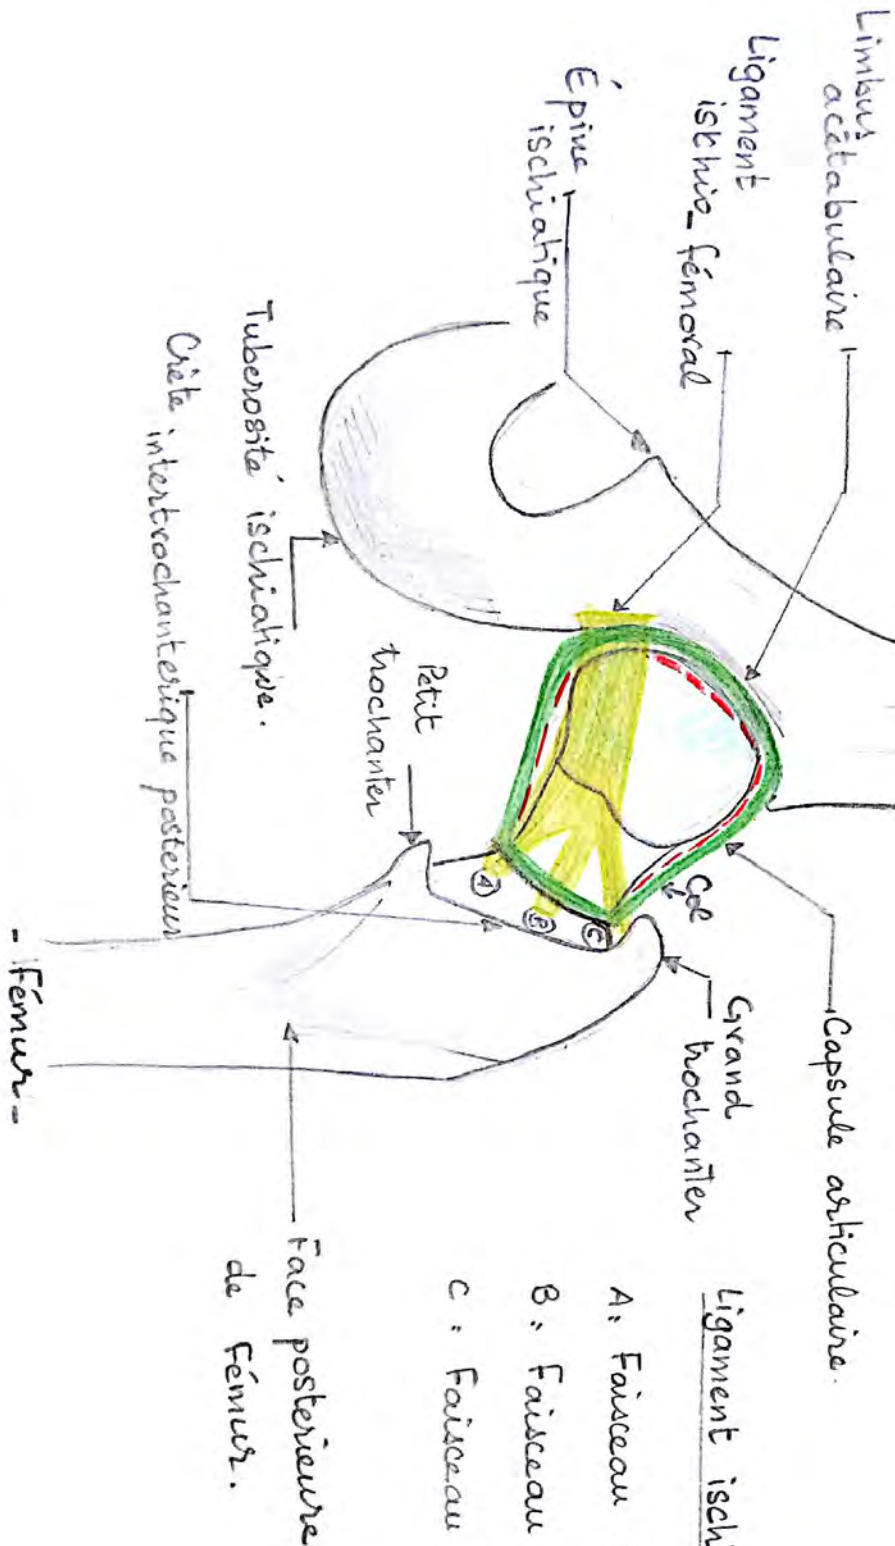 Limbus
acétabulaire
Ligament
ischio-fémoral
Épine
ischiatique
Tuberosité ischiatique.
Crête
intertrochanterique posterieur
Petit
trochanter
Col
A
B
C
Grand
trochanter
Capsule articulaire.
Ligament isch
A: Faisceau
B: Faisceau
C: Faisceau
Face posterieure
de Fémur.
- Fémur -